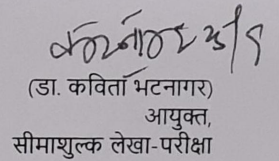 (डा. कविता भटनागर)
आयुक्त,
सीमाशुल्क लेखा-परीक्षा